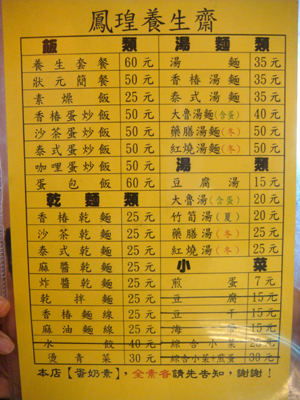 鳳瑝養生齋
飯類
養生套餐 60元
狀元簡餐 50元
素燥飯 25元
香椿蛋炒飯 50元
沙茶蛋炒飯 50元
泰式蛋炒飯 50元
咖哩蛋炒飯 50元
蛋包飯 50元
乾麵類
香椿乾麵 25元
沙茶乾麵 25元
泰式乾麵 25元
麻醬乾麵 25元
炸醬乾麵 25元
乾拌麵 25元
香椿麵線 25元
麻油麵線 25元
水餃 40元
燙青菜 30元
湯麵類
湯麵 35元
香椿湯麵 35元
泰式湯麵 35元
大魯湯麵(含蛋) 40元
藥膳湯麵(冬) 50元
紅燒湯麵(冬) 50元
湯類
豆腐湯 15元
大魯湯(含蛋) 20元
竹筍湯(夏) 20元
藥膳湯(冬) 25元
紅燒湯(冬) 25元
小菜
煎蛋 7元
豆腐 15元
豆干 15元
海帶 15元
綜合小菜 30元
綜合小菜+煎蛋 30元
本店【蛋奶素】,全素者請先告知,謝謝!